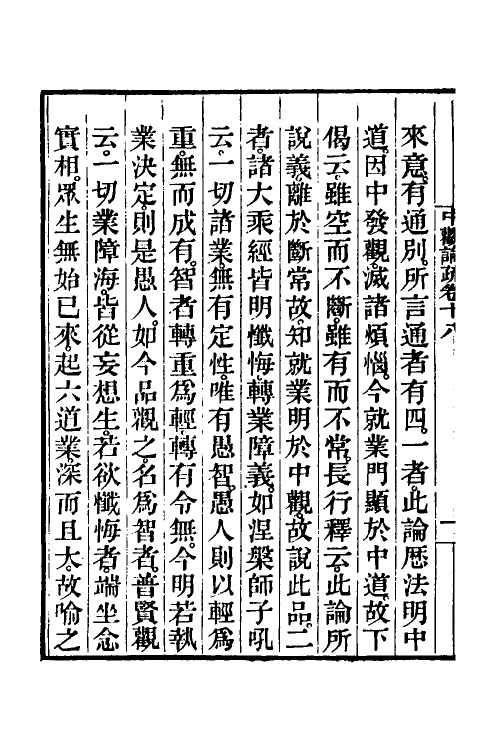 中觀論疏卷十八
一
來意。有通別。所言通者有四。一者。此論歷法明中
道。因中發觀。滅諸煩惱。今就業門顯於中道。故下
偈云。雖空而不斷。雖有而不常。長行釋云。此論所
說義。離於斷常故。知就業明於中觀。故說此品。二
者。諸大乘經皆明懺悔。轉業障義。如涅槃師子吼
云。一切諸業。無有定性。唯有愚智。愚人則以輕爲
重。無而成有。智者轉重爲輕。轉有令無。今明若執
業決定。則是愚人。如今品觀之。名爲智者。普賢觀
云。一切業障海。皆從妄想生。若欲懺悔者。端坐念
實相。眾生無始已來。起六道業。深而且大。故喻之